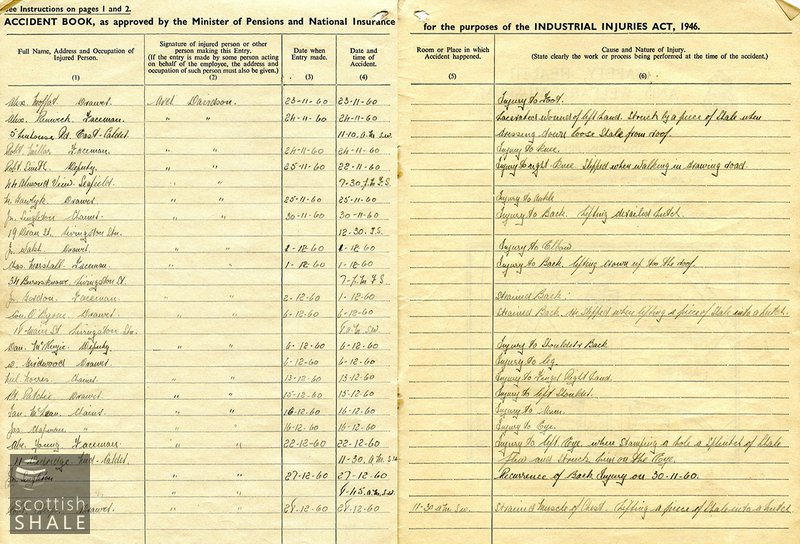 See Instructions on pages 1 and 2.
ACCIDENT BOOK, as approved by the Minister of Pensions and National Insurance for the purposes of the INDUSTRIAL INJURIES ACT, 1946.
Full Name, Address and Occupation of Injured Person. (1)
Signature of injured person or other person making this Entry. (If the entry is made by some person acting on behalf of the employee, the address and occupation of such person must also be given.) (2)
Date when Entry made. (3)
Date and time of Accident. (4)
Room or Place in which Accident happened. (5)
Cause and Nature of Injury. (State clearly the work or process being performed at the time of the accident.) (6)
Alex. Moffat Drawer Davidson. 23-11-60 23-11-60 Injury to Foot.
Alex. Renwick Faceman " " 24-11-60 24-11-60 Lacerated wound of left hand. Struck by a piece of Shale when
5 Limehouse Rd. East-Calder. 11-10. A.M. S.W. dressing down loose Shale from roof.
Robt Millar Faceman " " 24-11-60 24-11-60 Injury to Knee.
Robt Smith Deputy " " 25-11-60 22-11-60 Injury to right Knee. Slipped when walking in drawing road.
44 Almond View. Seafield. " " 7-30 P.M. F.S.
Drawer " " 25-11-60 25-11-60 Injury to Ankle
Jn. Singleton Chains " " 30-11-60 30-11-60 Injury to Back. Lifting derailed hutch.
19 Dean St. Livingston Stn. 12-30. F.S.
Jn. Walsh Drawer " " 1-12-60 1-12-60 Injury to Elbow
Chas. Marshall Faceman " " 1-12-60 1-12-60 Injury to Back. Lifting
34 Livingston St. 7-P.M. F.S.
Jn. Gordon Faceman " " 2-12-60 1-12-60 Strained Back.
O'Byrne Drawer " " 6-12-60 6-12-60 Strained Back. He slipped when lifting a piece of Shale into a hutch.
18 Main St. Livingston Stn. 9 A.M. S.W.
Dan. McKenzie Deputy " " 6-12-60 6-12-60 Injury to Shoulder & Back
Girdwood Drawer " " 6-12-60 6-12-60 Injury to leg.
Neil Torres Chains " " 13-12-60 13-12-60 Injury to Finger Right hand.
Ritchie Drawer " " 15-12-60 15-12-60 Injury to left Shoulder.
Ian. McLean Chains " " 16-12-60 16-12-60 Injury to
Jas. Chapman " " " 16-12-60 16-12-60 Injury to Eye.
Alex. Young Faceman " " 22-12-60 22-12-60 Injury to left Eye. when Stamping a hole a Splinter of Shale
11 Mid-Calder. 11-30. A.M. S.W. flew and struck him on the Eye.
27-12-60 27-12-60 Recurrence of Back Injury on 30-11-60.
" " 9-45. A.M. S.W.
Drawer " " 28-12-60 28-12-60 11-30 A.M. S.W. Strained Muscle of Chest. Lifting a piece of Shale into a hutch
scottish
SHALE